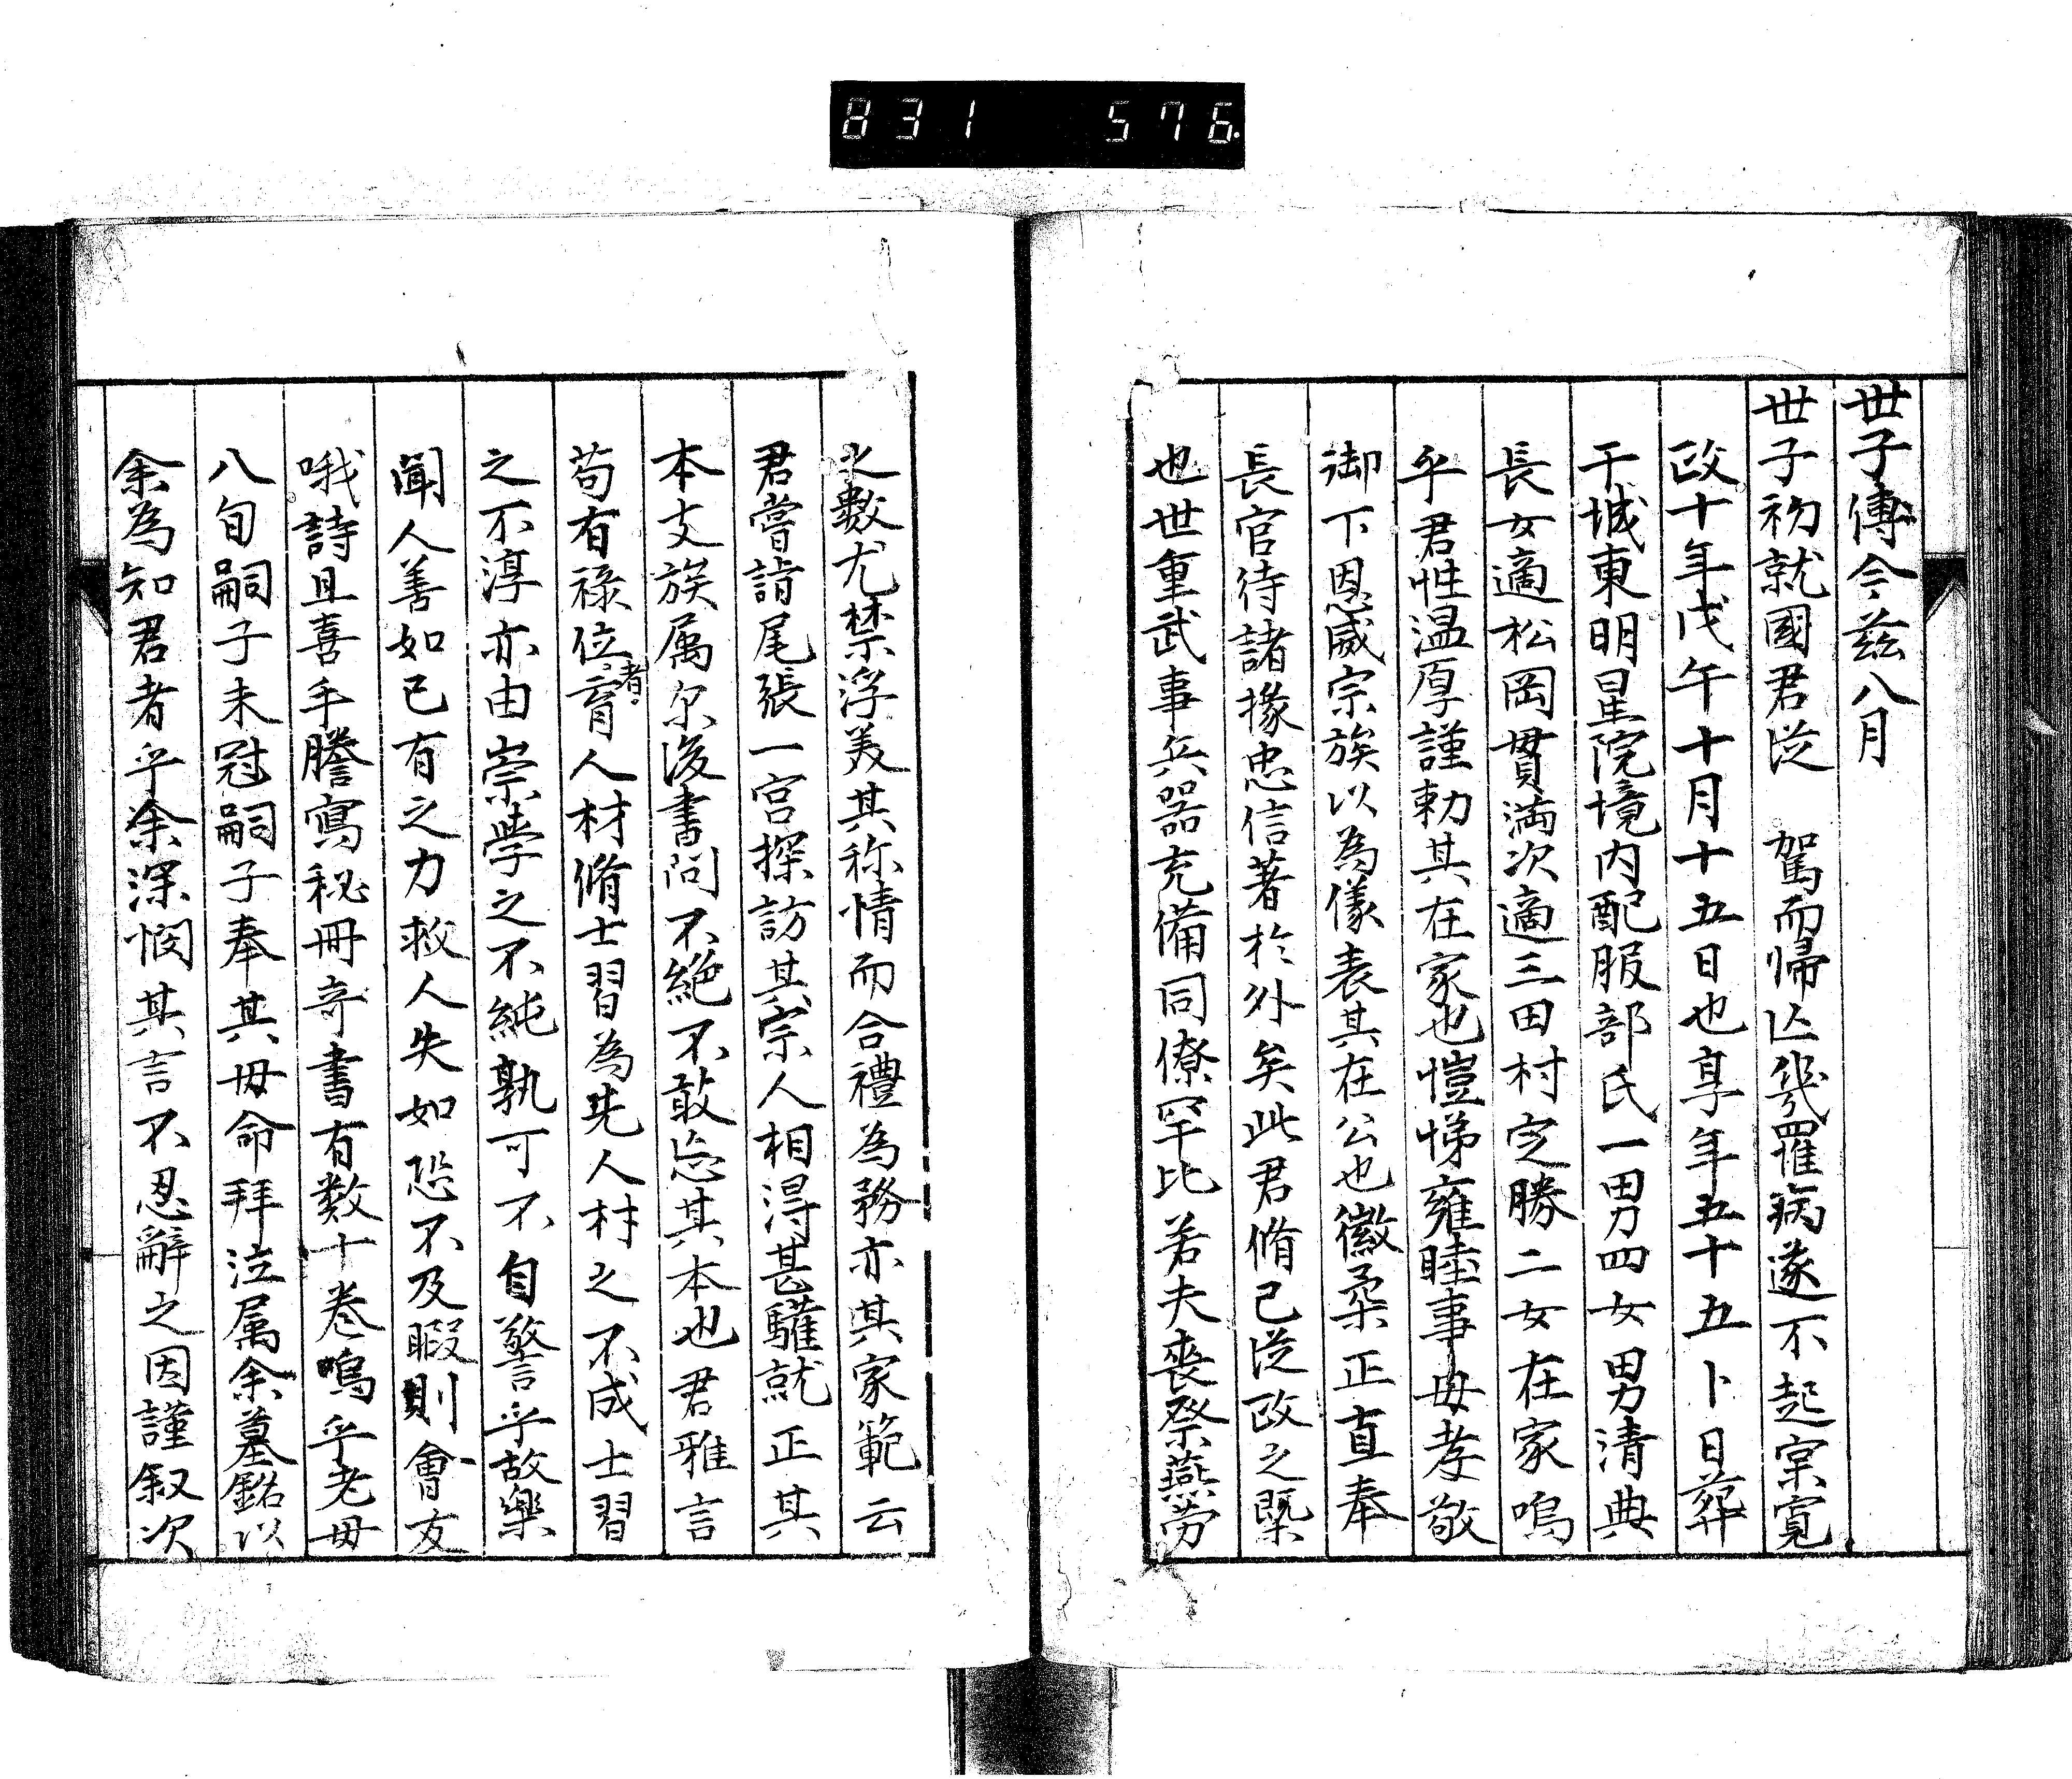 831 576
世子傅今茲八月
世子初就國君従 駕而帰亾幾罹病遂不起寔寛
政十年戊午十月十五日也享年五十五卜日葬
干城東明星院境内配服部氏一男四女男清典
長女適松岡貫満次適三田村定勝二女在家嗚
乎君性温厚謹勅其在家也愷悌雍睦事母孝敬
御下恩威宗族以為儀表其在公也徽柔正直奉
長官待諸掾忠信著於外矣此君脩己従政之槩
也世重武事兵器充備同僚罕比若夫喪祭燕労
之數尤禁浮美其称情而合禮為務亦其家範云
君嘗詣尾張一宮探訪其宗人相得甚驩就正其
本支族属尓後書問不絶不敢忘其本也君雅言
苟有禄位者育人材脩士習為先人材之不成士習
之不淳亦由崇学之不純孰可不自警乎故樂
聞人善如己有之力救人失如恐不及暇則會友
哦詩且喜手謄寫秘冊奇書有数十巻嗚乎老母
八旬嗣子未冠嗣子奉其母命拜泣属余墓銘以
余為知君者乎余深憫其言不忍辭之因謹叙次